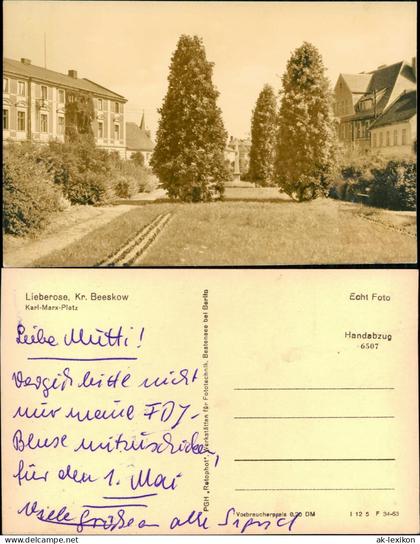 Lieberose, Kr. Beeskow
Karl-Marx-Platz
Liebe Mutti!
Vergiß bitte nicht
mir meine FDJ-
Bluse mitzuschicken,
für den 1. Mai
Viele Grüße an alle
PGH „Retophot", Werkstätten für Fototechnik, Bestensee bei Berlin
Echt Foto
Handabzug
6507
Verbraucherpreis 0,20 DM
I 12 5 F 34-63
© www.ak-lexikon.de